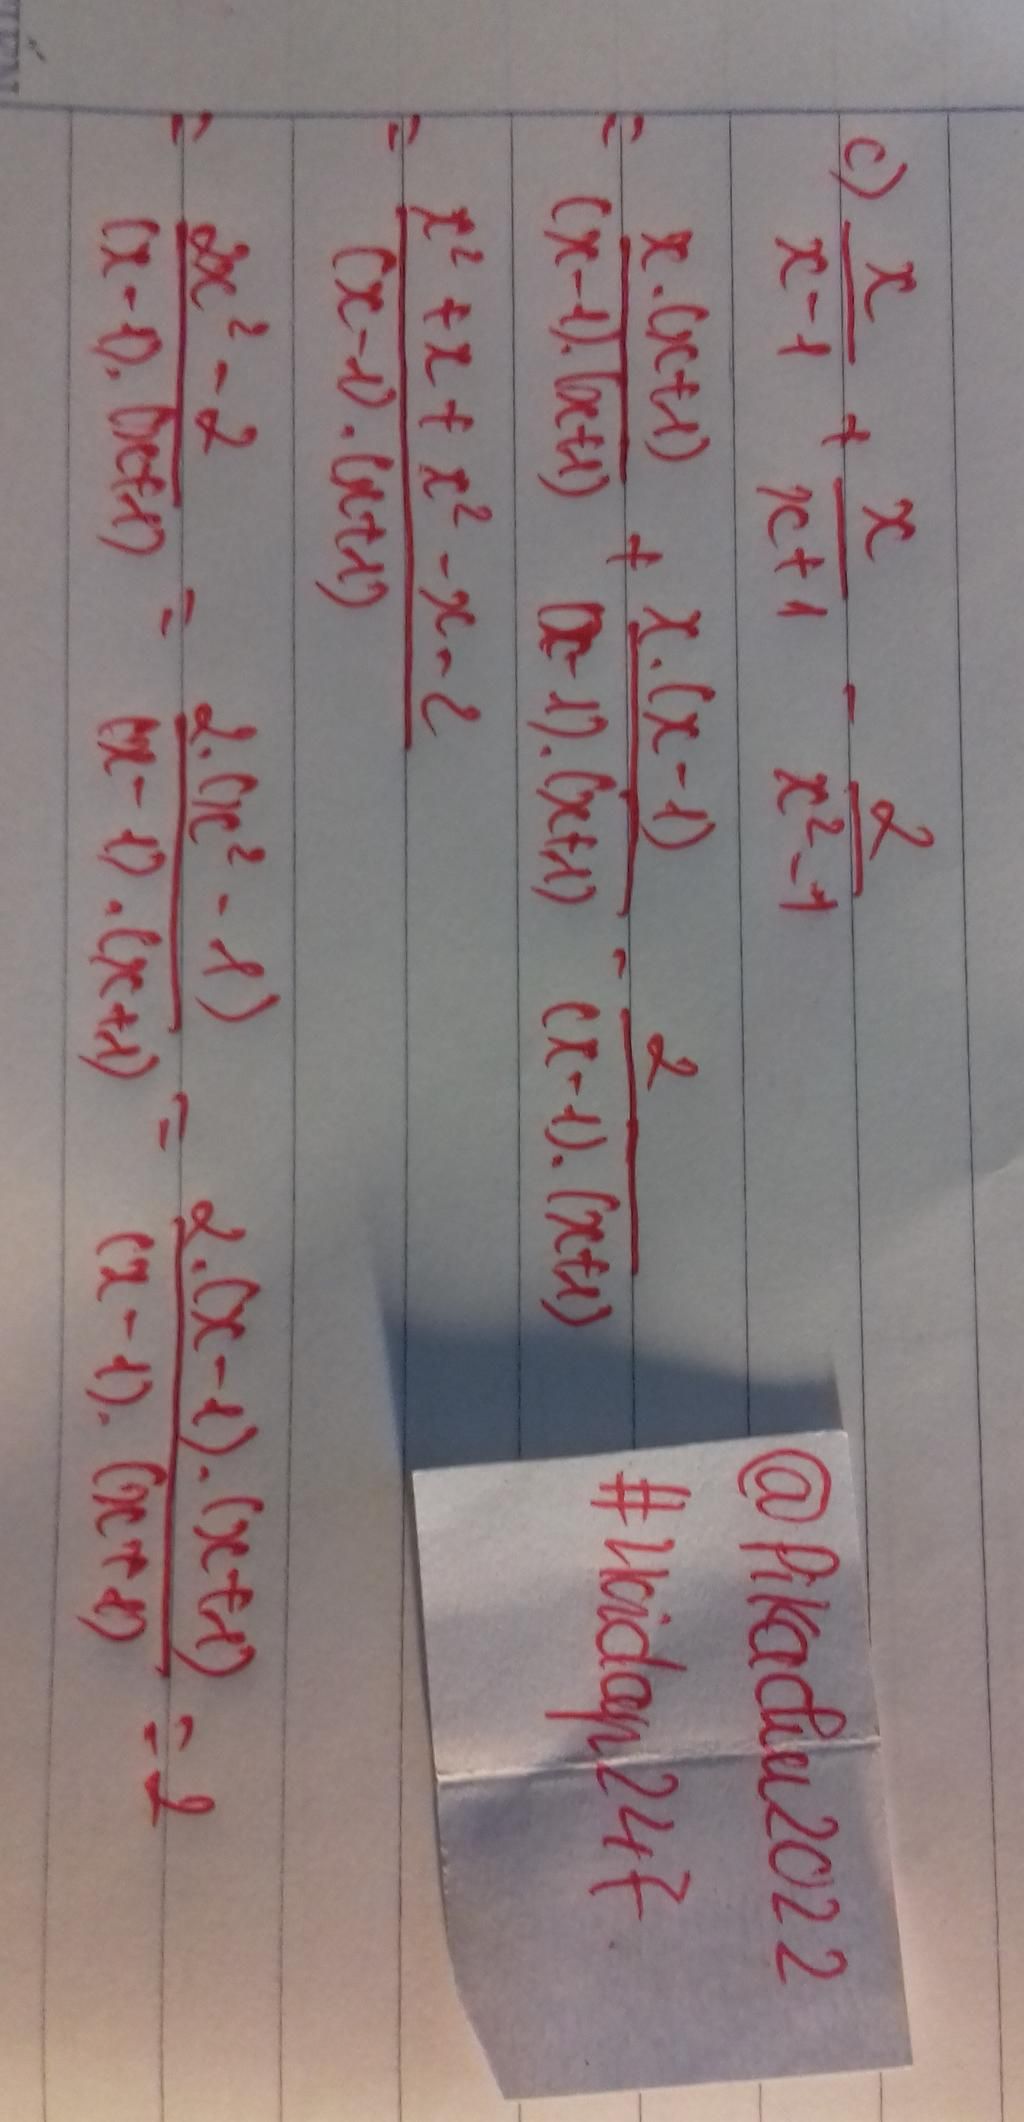 c) x/(x-1) + x/(x+1) - 2/(x²-1)
= x.(x+1)/(x-1).(x+1) + x.(x-1)/(x-1).(x+1) - 2/(x-1).(x+1)
= x²+x+x²-x-2/(x-1).(x+1)
= 2x²-2/(x-1).(x+1) = 2.(x²-1)/(x-1).(x+1) = 2.(x-1).(x+1)/(x-1).(x+1) = 2
@Pikachu2022